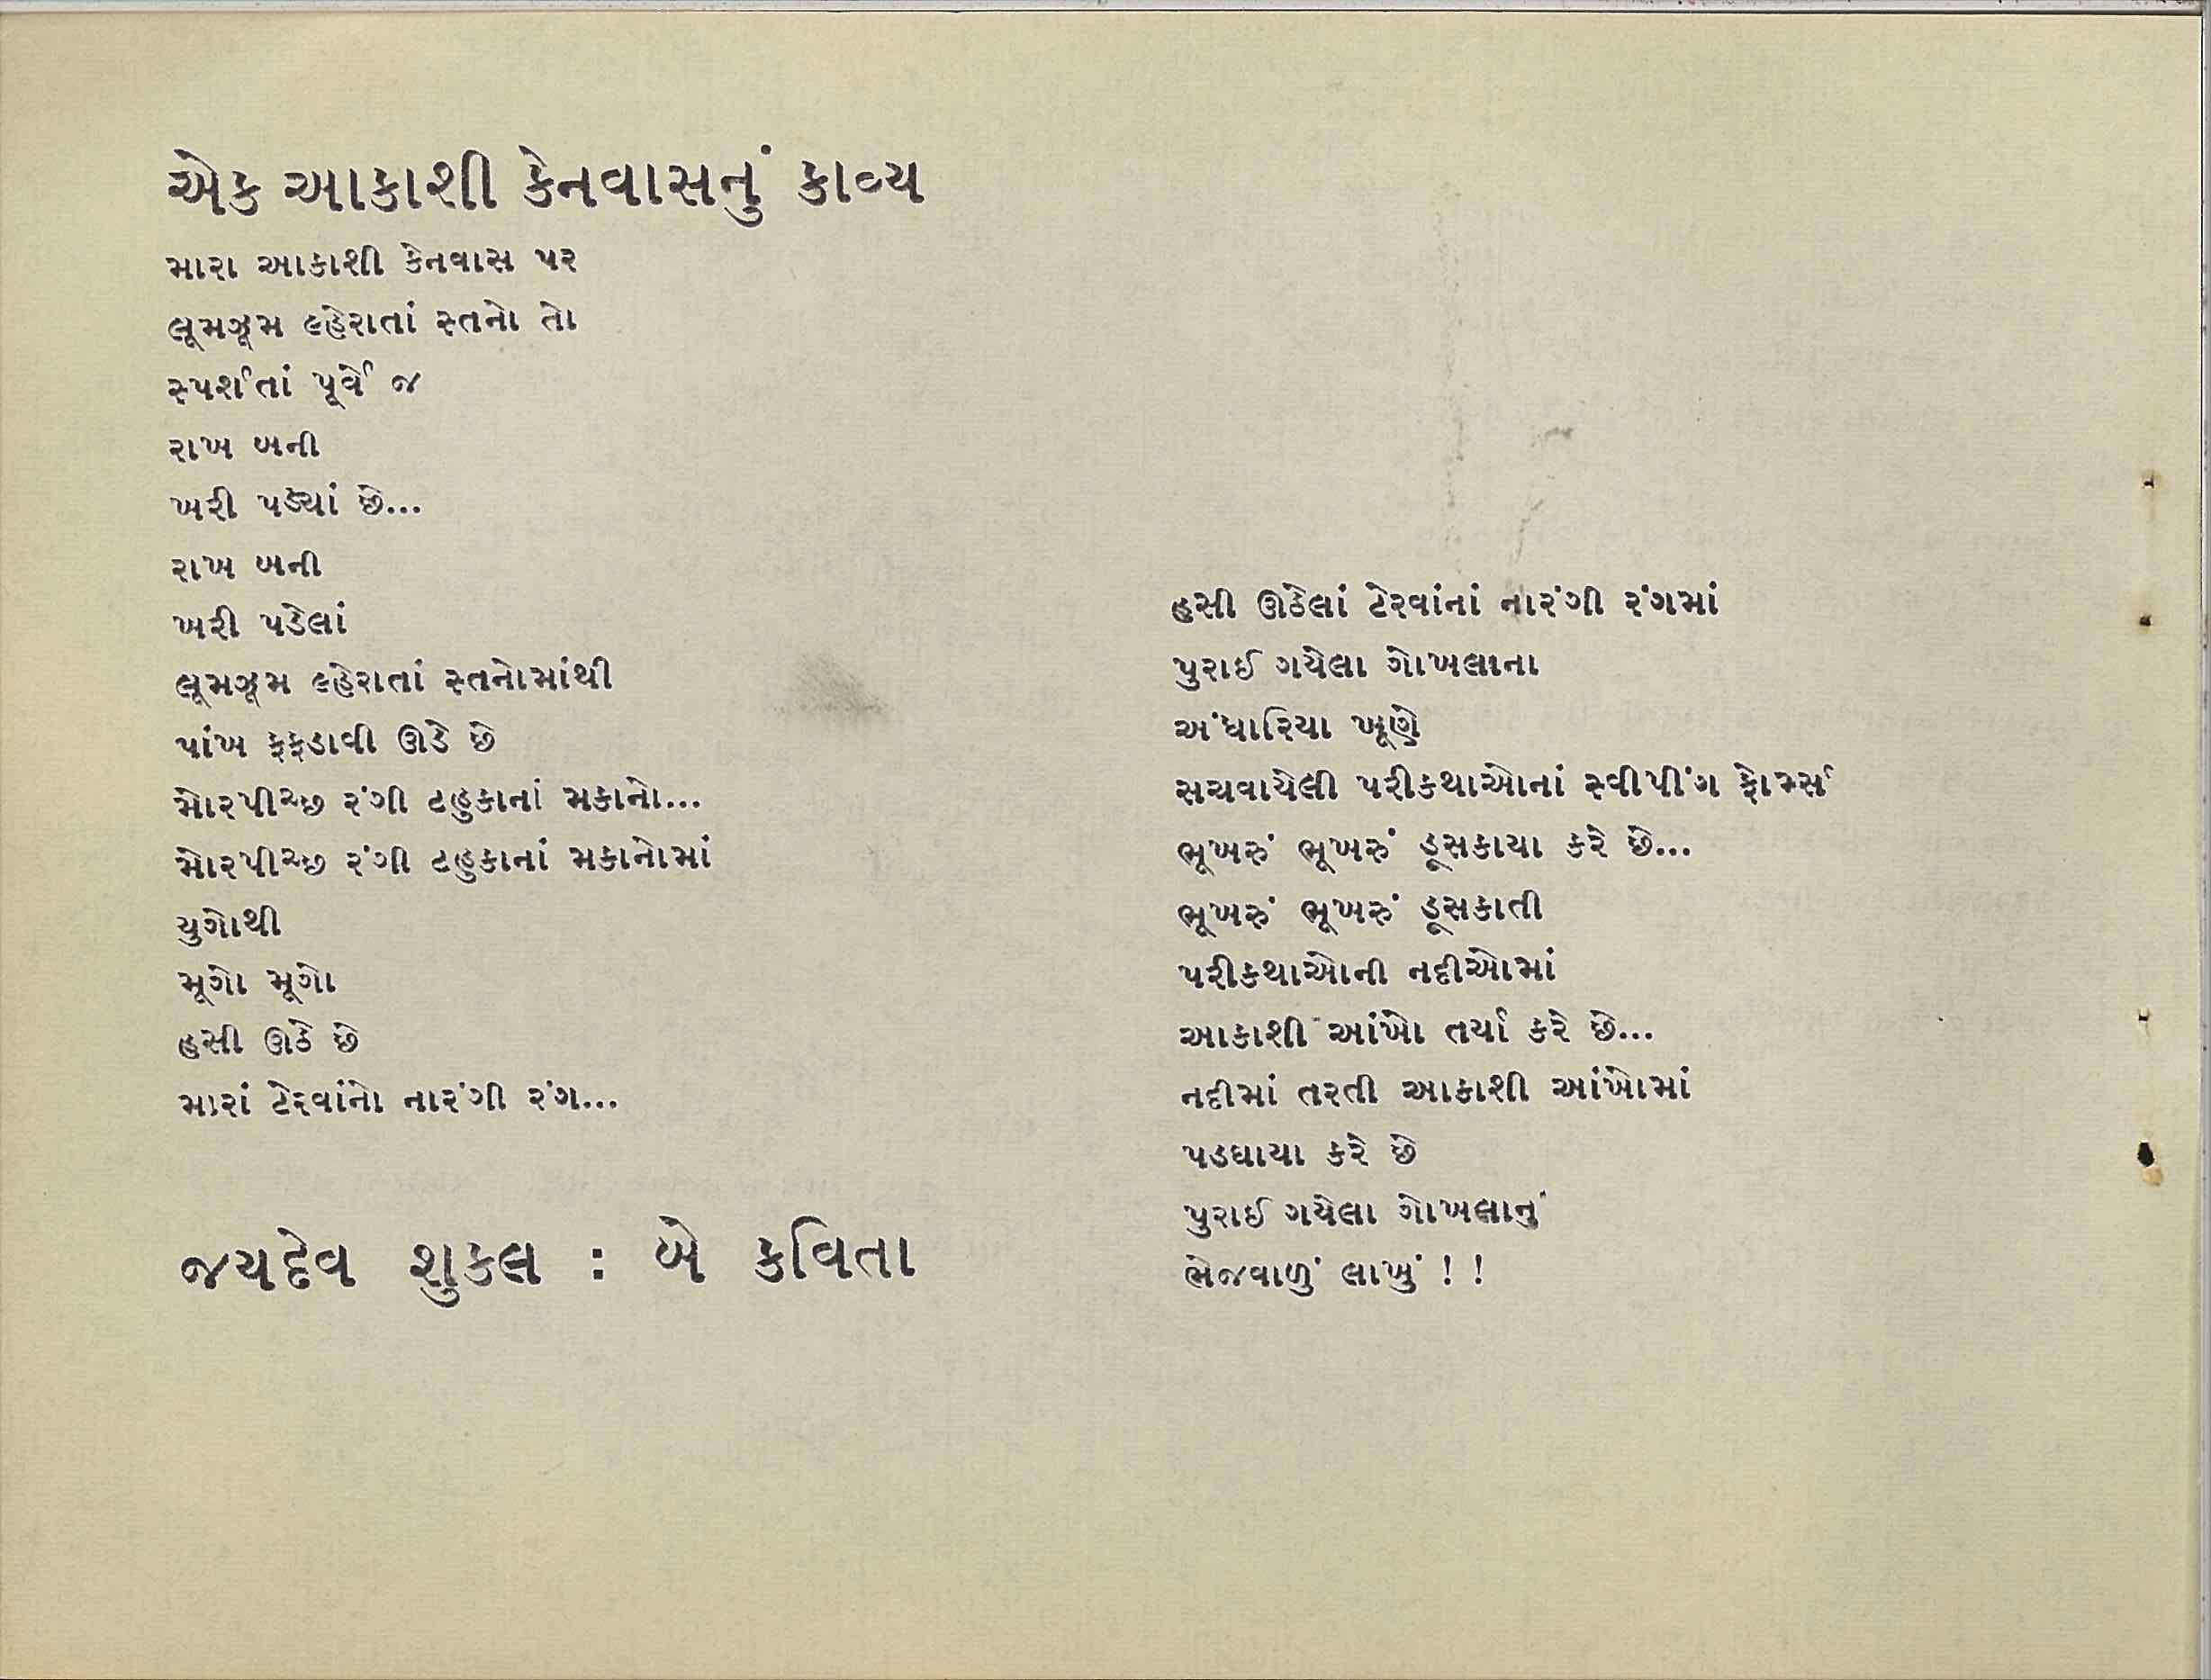 એક આકાશી કેનવાસનું કાવ્ય
મારા આકાશી કેનવાસ પર
લૂમઝૂમ લ્હેરાતાં સ્તનો તો
સ્પર્શતાં પૂર્વે જ
રાખ બની
ખરી પડ્યાં છે...
રાખ બની
ખરી પડેલાં
લૂમઝૂમ લ્હેરાતાં સ્તનોમાંથી
પાંખ ફફડાવી ઊડે છે
મોરપીચ્છ રંગી ટહુકાનાં મકાનો...
મોરપીચ્છ રંગી ટહુકાનાં મકાનોમાં
યુગોથી
મૂગો મૂગો
હસી ઊઠે છે
મારાં ટેરવાંનો નારંગી રંગ...
જયદેવ શુકલ : બે કવિતા
હસી ઊઠેલાં ટેરવાંનાં નારંગી રંગમાં
પુરાઈ ગયેલા ગોખલાના
અંધારિયા ખૂણે
સચવાયેલી પરીકથાઓનાં સ્વીપીંગ ફોર્મ્સ
ભૂખરું ભૂખરું ડૂસકાયા કરે છે...
ભૂખરું ભૂખરું ડૂસકાતી
પરીકથાઓની નદીઓમાં
આકાશી આંખો તર્યા કરે છે...
નદીમાં તરતી આકાશી આંખોમાં
પડઘાયા કરે છે
પુરાઈ ગયેલા ગોખલાનું
ભેજવાળું લાખું ! !